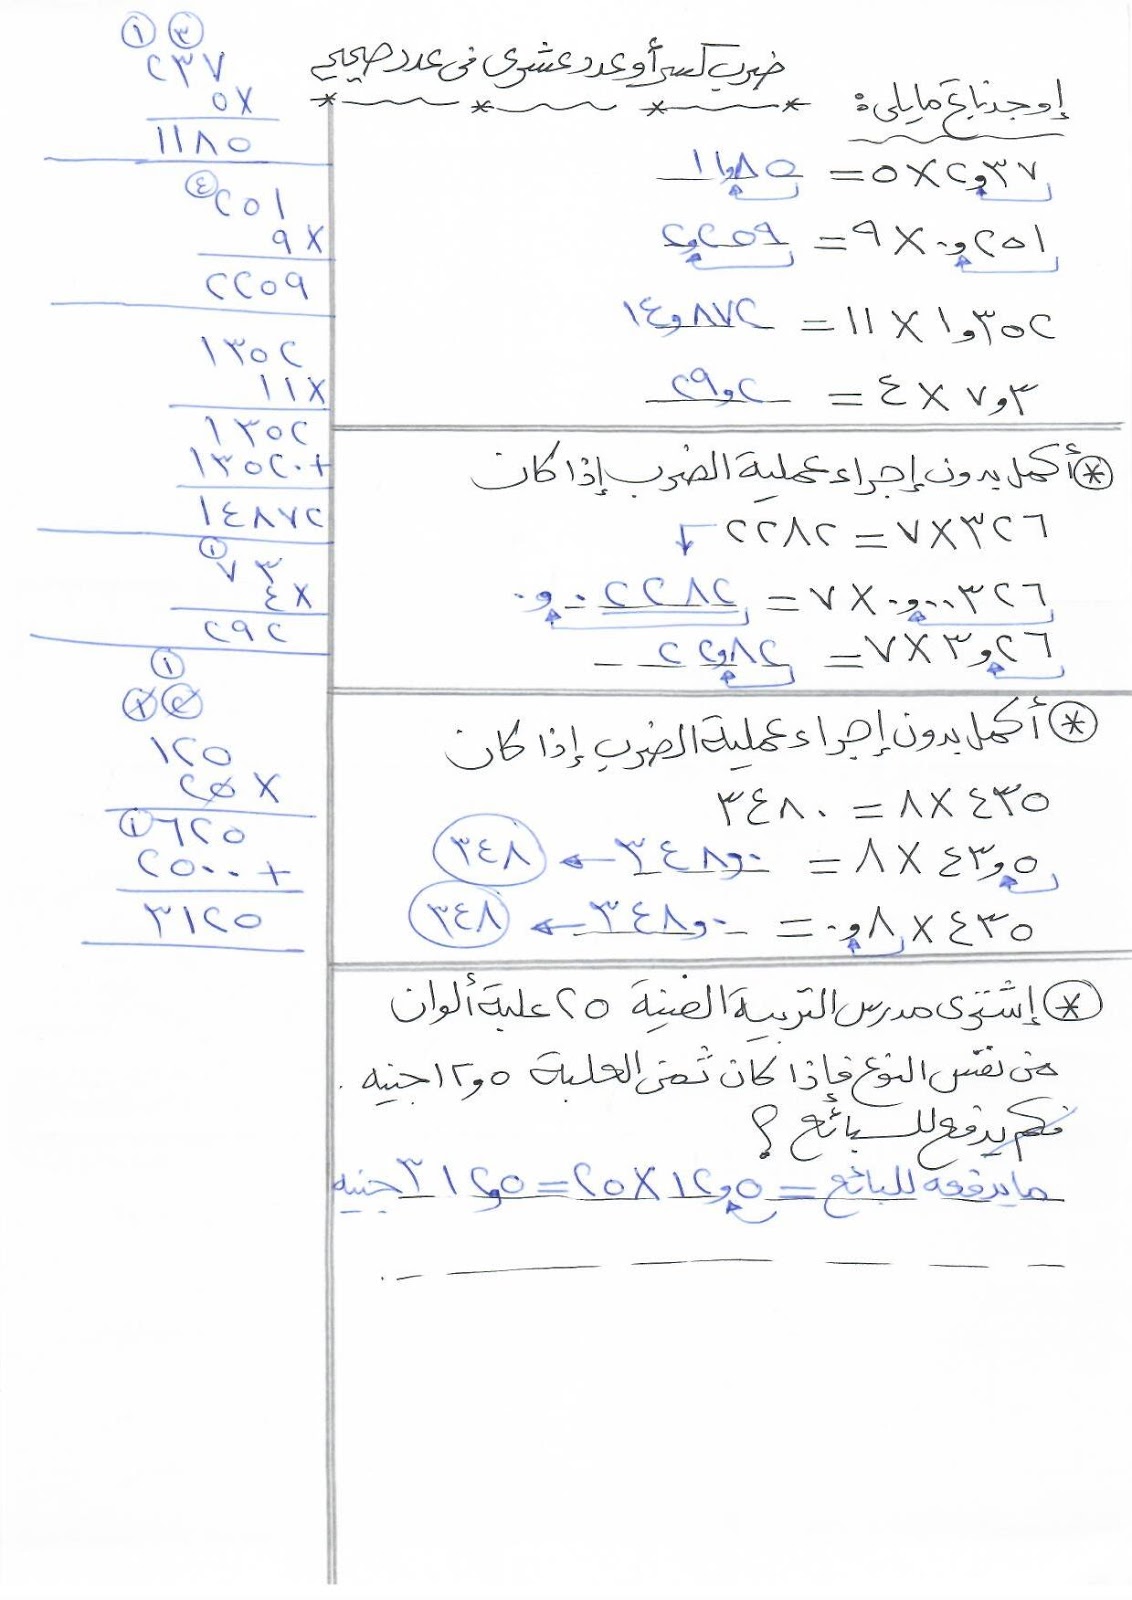 ضرب كسر أو عدد عشرى فى عدد صحيح
إوجد ناتج مايلى:
٢و٣٧ × ٥ = ١١و٨٥
٠و٢٥١ × ٩ = ٢و٢٥٩
١و٣٥٢ × ١١ = ١٤و٨٧٢
٧و٣ × ٤ = ٢٩و٢
* أكمل بدون إجراء عملية الضرب إذا كان
٣٢٦ × ٧ = ٢٢٨٢
٠و٠٠٣٢٦ × ٧ = ٠و٠٢٢٨٢
٣و٢٦ × ٧ = ٢٢و٨٢
* أكمل بدون إجراء عملية الضرب إذا كان
٤٣٥ × ٨ = ٣٤٨٠
٤٣و٥ × ٨ = ٣٤٨و٠ ← ٣٤٨
٤٣٥ × ٠و٨ = ٣٤٨و٠ ← ٣٤٨
* إشترى مدرس التربية الفنية ٢٥ علبة ألوان
من نفس النوع فإذا كان ثمن العلبة ١٢و٥ جنيه .
فكم يدفع للبائع ؟
ما يدفعه للبائع = ١٢و٥ × ٢٥ = ٣١٢و٥ جنيه
١ ٣
٢٣٧
٥ ×
١١٨٥
٤
٢٥١
٩ ×
٢٢٥٩
١٣٥٢
١١ ×
١٣٥٢
١٣٥٢٠ +
١٤٨٧٢
١
٧٣
٤ ×
٢٩٢
١
١ ٢
١٢٥
٢٥ ×
١ ٦٢٥
٢٥٠٠ +
٣١٢٥